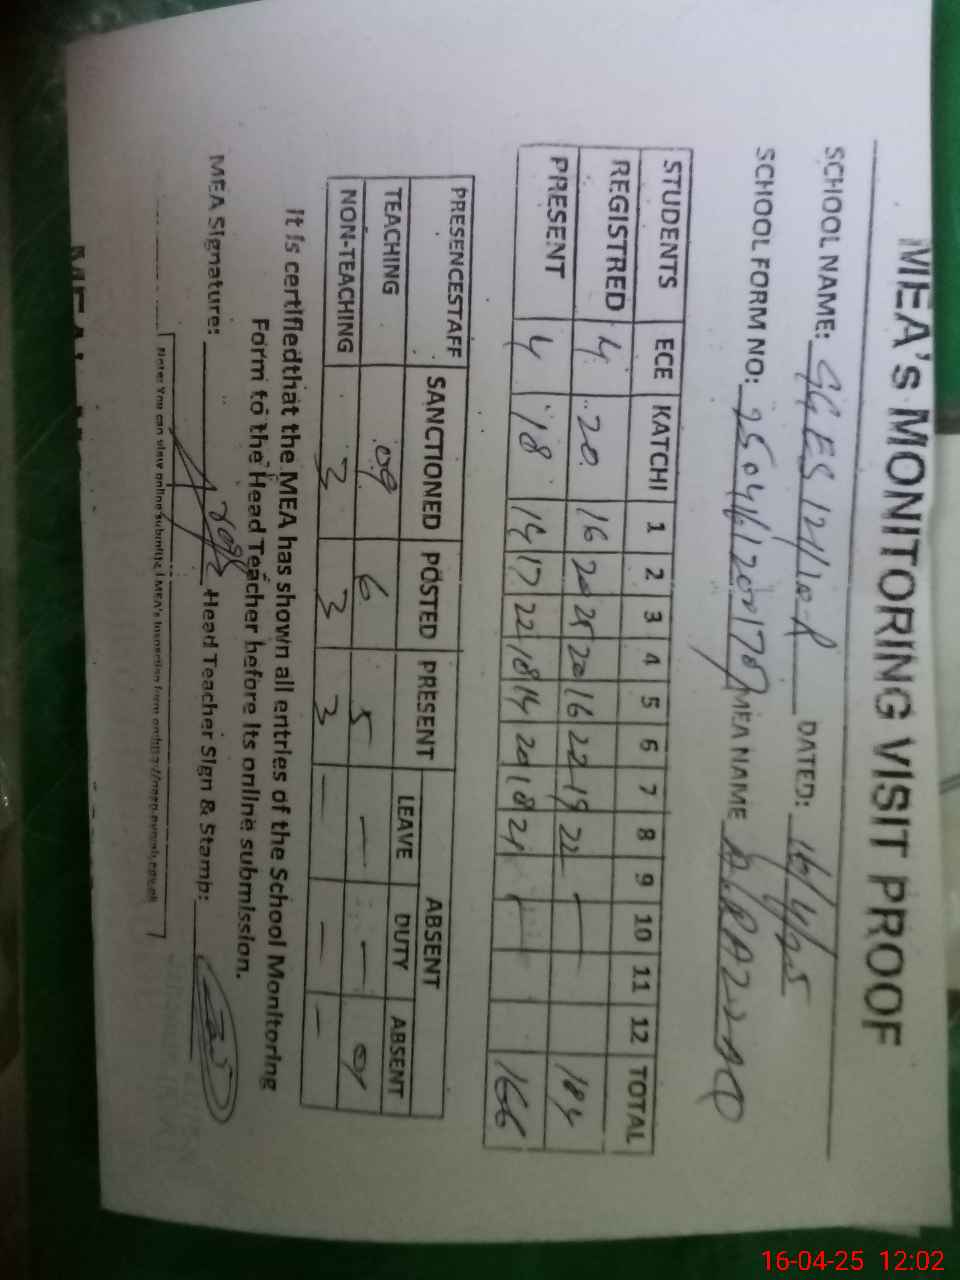 MEA's MONITORING VISIT PROOF
SCHOOL NAME: GGES 121/10-R DATED: 16/4/25
SCHOOL FORM NO: MEA NAME A. RAZZAQ
STUDENTS ECE KATCHI 1 2 3 4 5 6 7 8 9 10 11 12 TOTAL
REGISTRED 4 20 16 20 25 20 16 22 19 22 — 184
PRESENT 4 18 14 17 22 18 14 20 18 21 166
PRESENCESTAFF SANCTIONED POSTED PRESENT ABSENT
LEAVE DUTY ABSENT
TEACHING 09 6 5 — — 01
NON-TEACHING 3 3 3 — — —
It is certifiedthat the MEA has shown all entries of the School Monitoring
Form to the Head Teacher before its online submission.
MEA Signature: Head Teacher Sign & Stamp:
Note: You can view online submitted MEA's Inspection form on
16-04-25 12:02